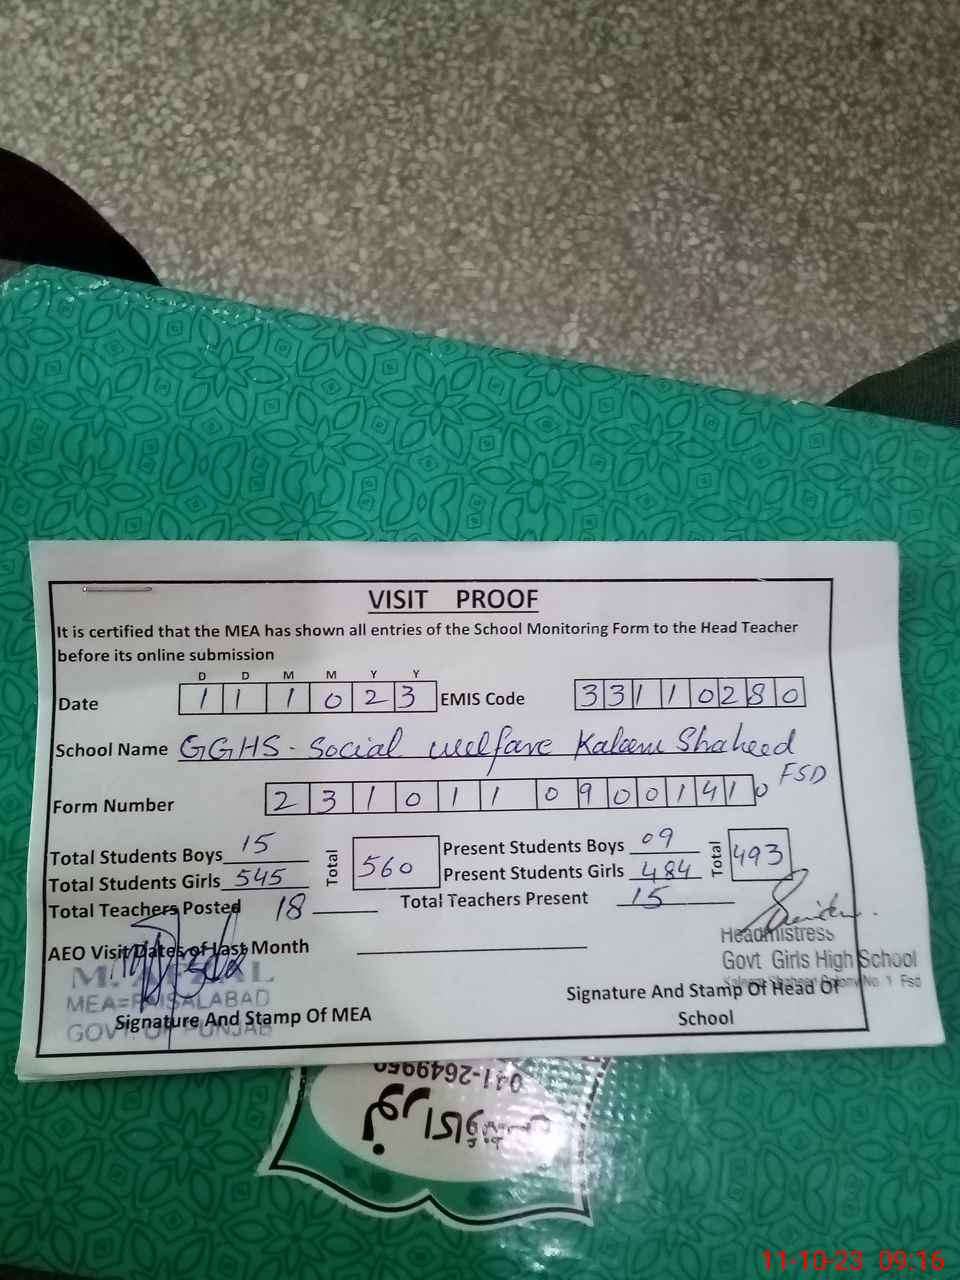 VISIT PROOF
It is certified that the MEA has shown all entries of the School Monitoring Form to the Head Teacher
before its online submission
D D M M Y Y
Date 1 1 1 0 2 3 EMIS Code 3 3 1 1 0 2 8 0
School Name GGHS - Social welfare Kaleem Shaheed
FSD
Form Number 2 3 1 0 1 1 0 9 0 0 1 4 1 0
Total Students Boys 15 Total 560 Present Students Boys 09 Total 493
Total Students Girls 545 Present Students Girls 484
Total Teachers Posted 18 Total Teachers Present 15
AEO Visit Dates of Last Month
Headmistress
Govt Girls High School
Kaleem Shaheed Colony No 1 Fsd
M. AFZAL
MEA=FAISALABAD
GOVT. OF PUNJAB
Signature And Stamp Of MEA
Signature And Stamp Of Head Of
School
041-2649950
11-10-23 09:16